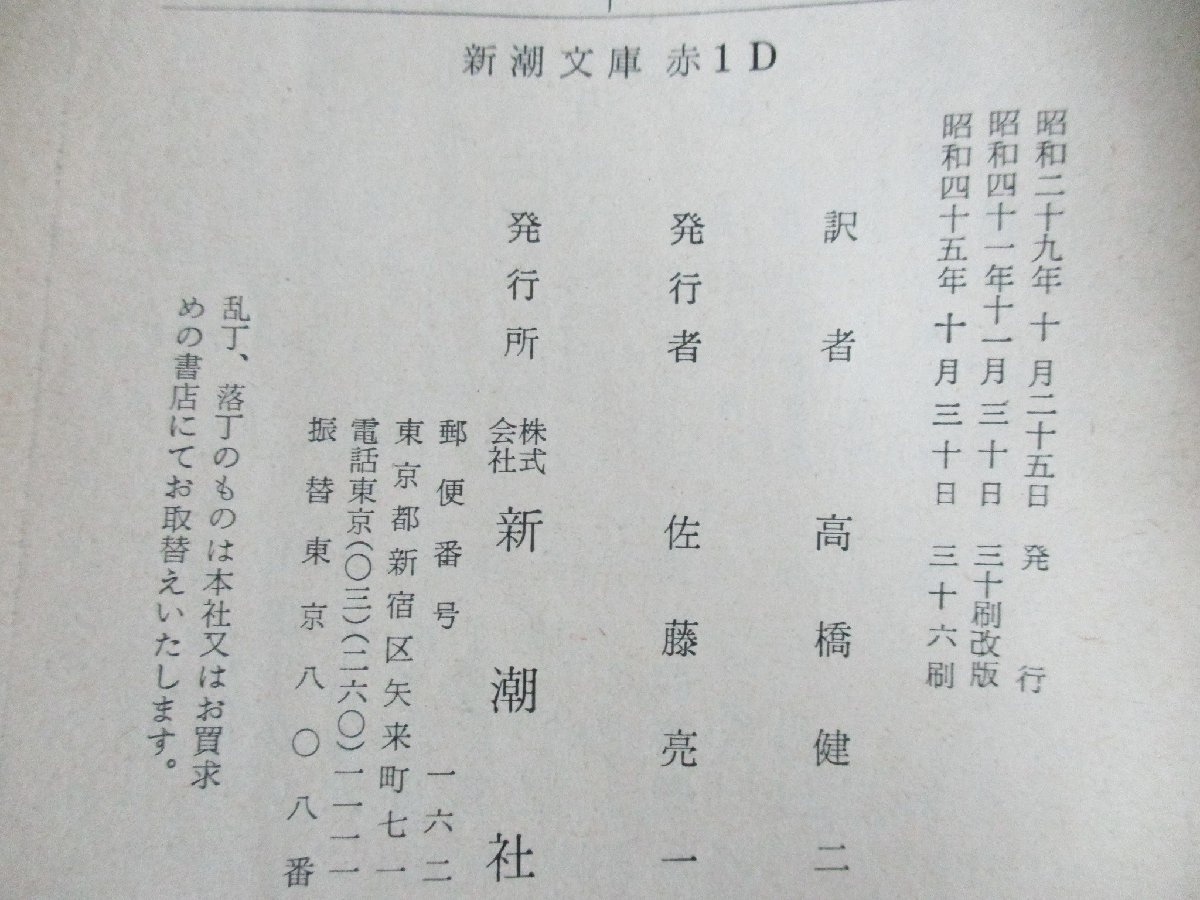 新潮文庫 赤1D
昭和二十九年 十 月二十五日 発 行
昭和四十一年十一月 三 十 日 三十刷改版
昭和四十五年 十 月 三 十 日 三 十 六 刷
訳者 高橋健二
発行者 佐藤亮一
発行所 株式会社 新潮社
郵便番号 一六二
東京都新宿区矢来町七一
電話東京(〇三)(二六〇)一一一一
振替東京八〇八番
乱丁、落丁のものは本社又はお買求
めの書店にてお取替えいたします。